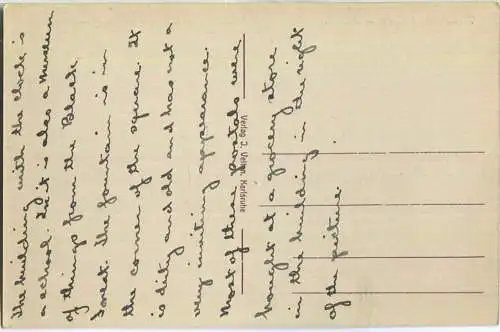 The building with the clock is
a school. In it is also a museum
of things from the Black
Forest. The fountain is in
the corner of the square. It
is dirty and old and has not a
very inviting appearance.
Most of these postals were
bought at a grocery store
in the building in the right
of the picture.
Verlag J. Velten, Karlsruhe